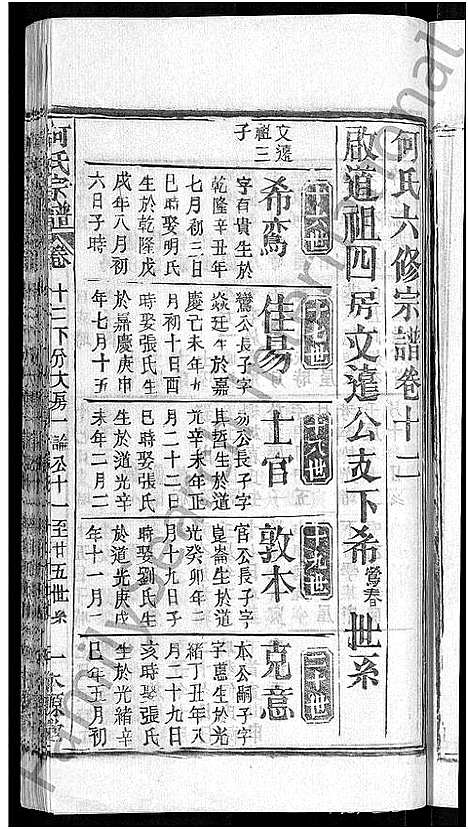 何氏六修宗譜卷十二
啟道祖四房文遠公支下希鸞春世系
文遠
祖三
子
十六世
希鸞
字百貴生於
乾隆辛丑年
七月初三日
巳時娶明氏
生於乾隆戊
戌年八月初
六日子時
十七世
佳易
鸞公長子字
焱廷生於嘉
慶己未年
月初十日酉
時娶張氏生
於嘉慶庚申
年七月十五
十八世
士官
易公長子字
其哲生於道
光辛未年正
月二十二日
巳時娶張氏
生於道光辛
未年二月二
十九世
敦本
官公長子字
崑崙生於道
光癸卯年二
月十九日子
時娶劉氏生
於道光庚戌
年十一月二
二十世
克意
本公嗣子字
字憲生於光
緒丁丑年八
月二十九日
亥時娶張氏
生於光緒辛
巳年五月初
何氏宗譜
卷十二下分大房一論公十一至廿五世系